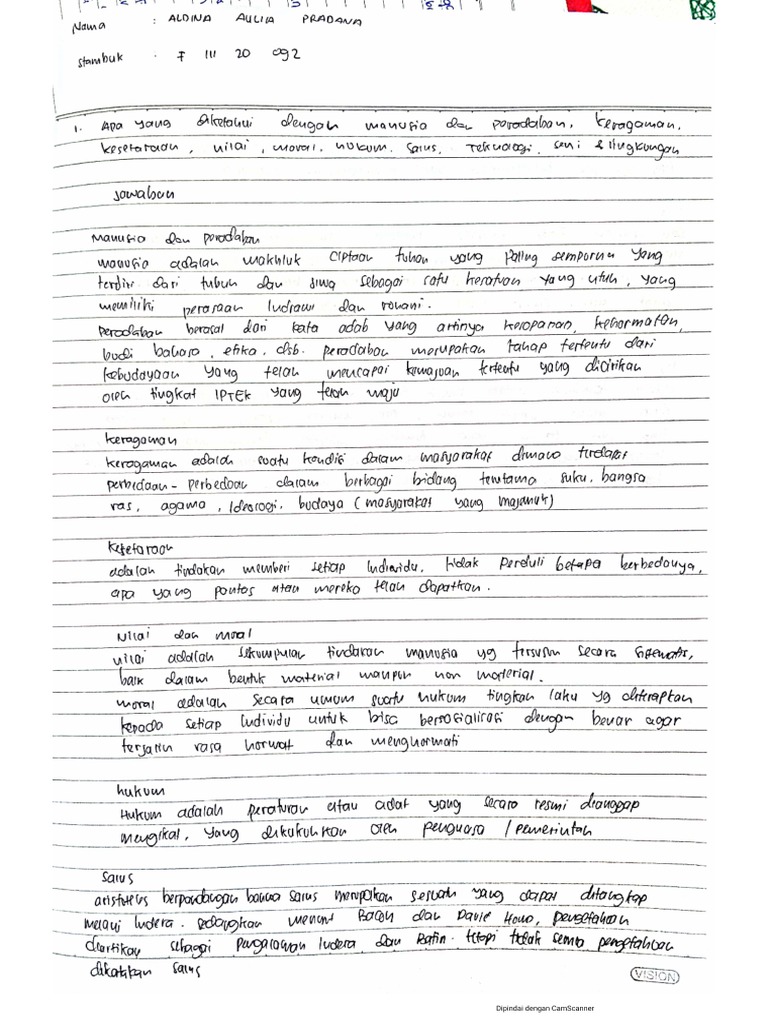 Nama : ALDINA AULIA PRADANA
Stambuk : F III 20 092
1. Apa yang diketahui dengan manusia dan peradaban, keragaman,
kesetaraan, nilai, moral, hukum, sains, Teknologi, seni & lingkungan
Jawaban
Manusia dan peradaban
manusia adalah makhluk ciptaan tuhan yang paling sempurna yang
terdiri dari tubuh dan jiwa sebagai satu kesatuan yang utuh, yang
memiliki perasaan indrawi dan rohani.
peradaban berasal dari kata adab yang artinya kesopanan, kehormatan,
budi bahasa, etika, dsb. peradaban merupakan tahap tertentu dari
kebudayaan yang telah mencapai kemajuan tertentu yang dicirikan
oleh tingkat IPTEK yang telah maju
keragaman
keragaman adalah suatu kondisi dalam masyarakat dimana terdapat
perbedaan-perbedaan dalam berbagai bidang terutama suku, bangsa
ras, agama, Ideologi, budaya (masyarakat yang majemuk)
Kesetaraan
adalah tindakan memberi setiap Individu, tidak perduli betapa berbedanya,
apa yang pantas atau mereka telah dapatkan.
Nilai dan moral
nilai adalah sekumpulan tindakan manusia yg tersusun secara sistematis,
baik dalam bentuk material maupun non material.
moral adalah secara umum suatu hukum tingkah laku yg diterapkan
kepada setiap Individu untuk bisa bersosialisasi dengan benar agar
terjalin rasa hormat dan menghormati
hukum
Hukum adalah peraturan atau adat yang secara resmi dianggap
mengikat, yang dikukuhkan oleh penguasa / pemerintah
Sains
aristoteles berpandangan bahwa sains merupakan sesuatu yang dapat ditangkap
melalui Indera. sedangkan menurut Bacon dan David Home, pengetahuan
diartikan sebagai pengalaman Indera dan Batin. tetapi tidak semua pengetahuan
dikatakan sains
VISION
Dipindai dengan CamScanner